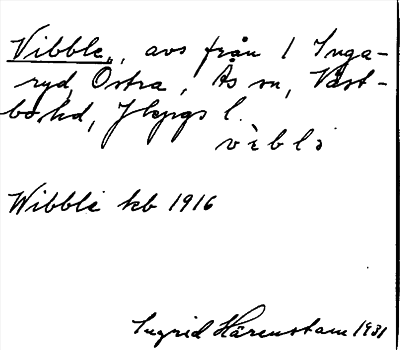 Vibble, avs från 1 Inga-
ryd Östra, Ås sn, Väst-
bo hd, Jkpgs l.
vìbls
Wibble kb 1916
Ingrid Härenstam 1931